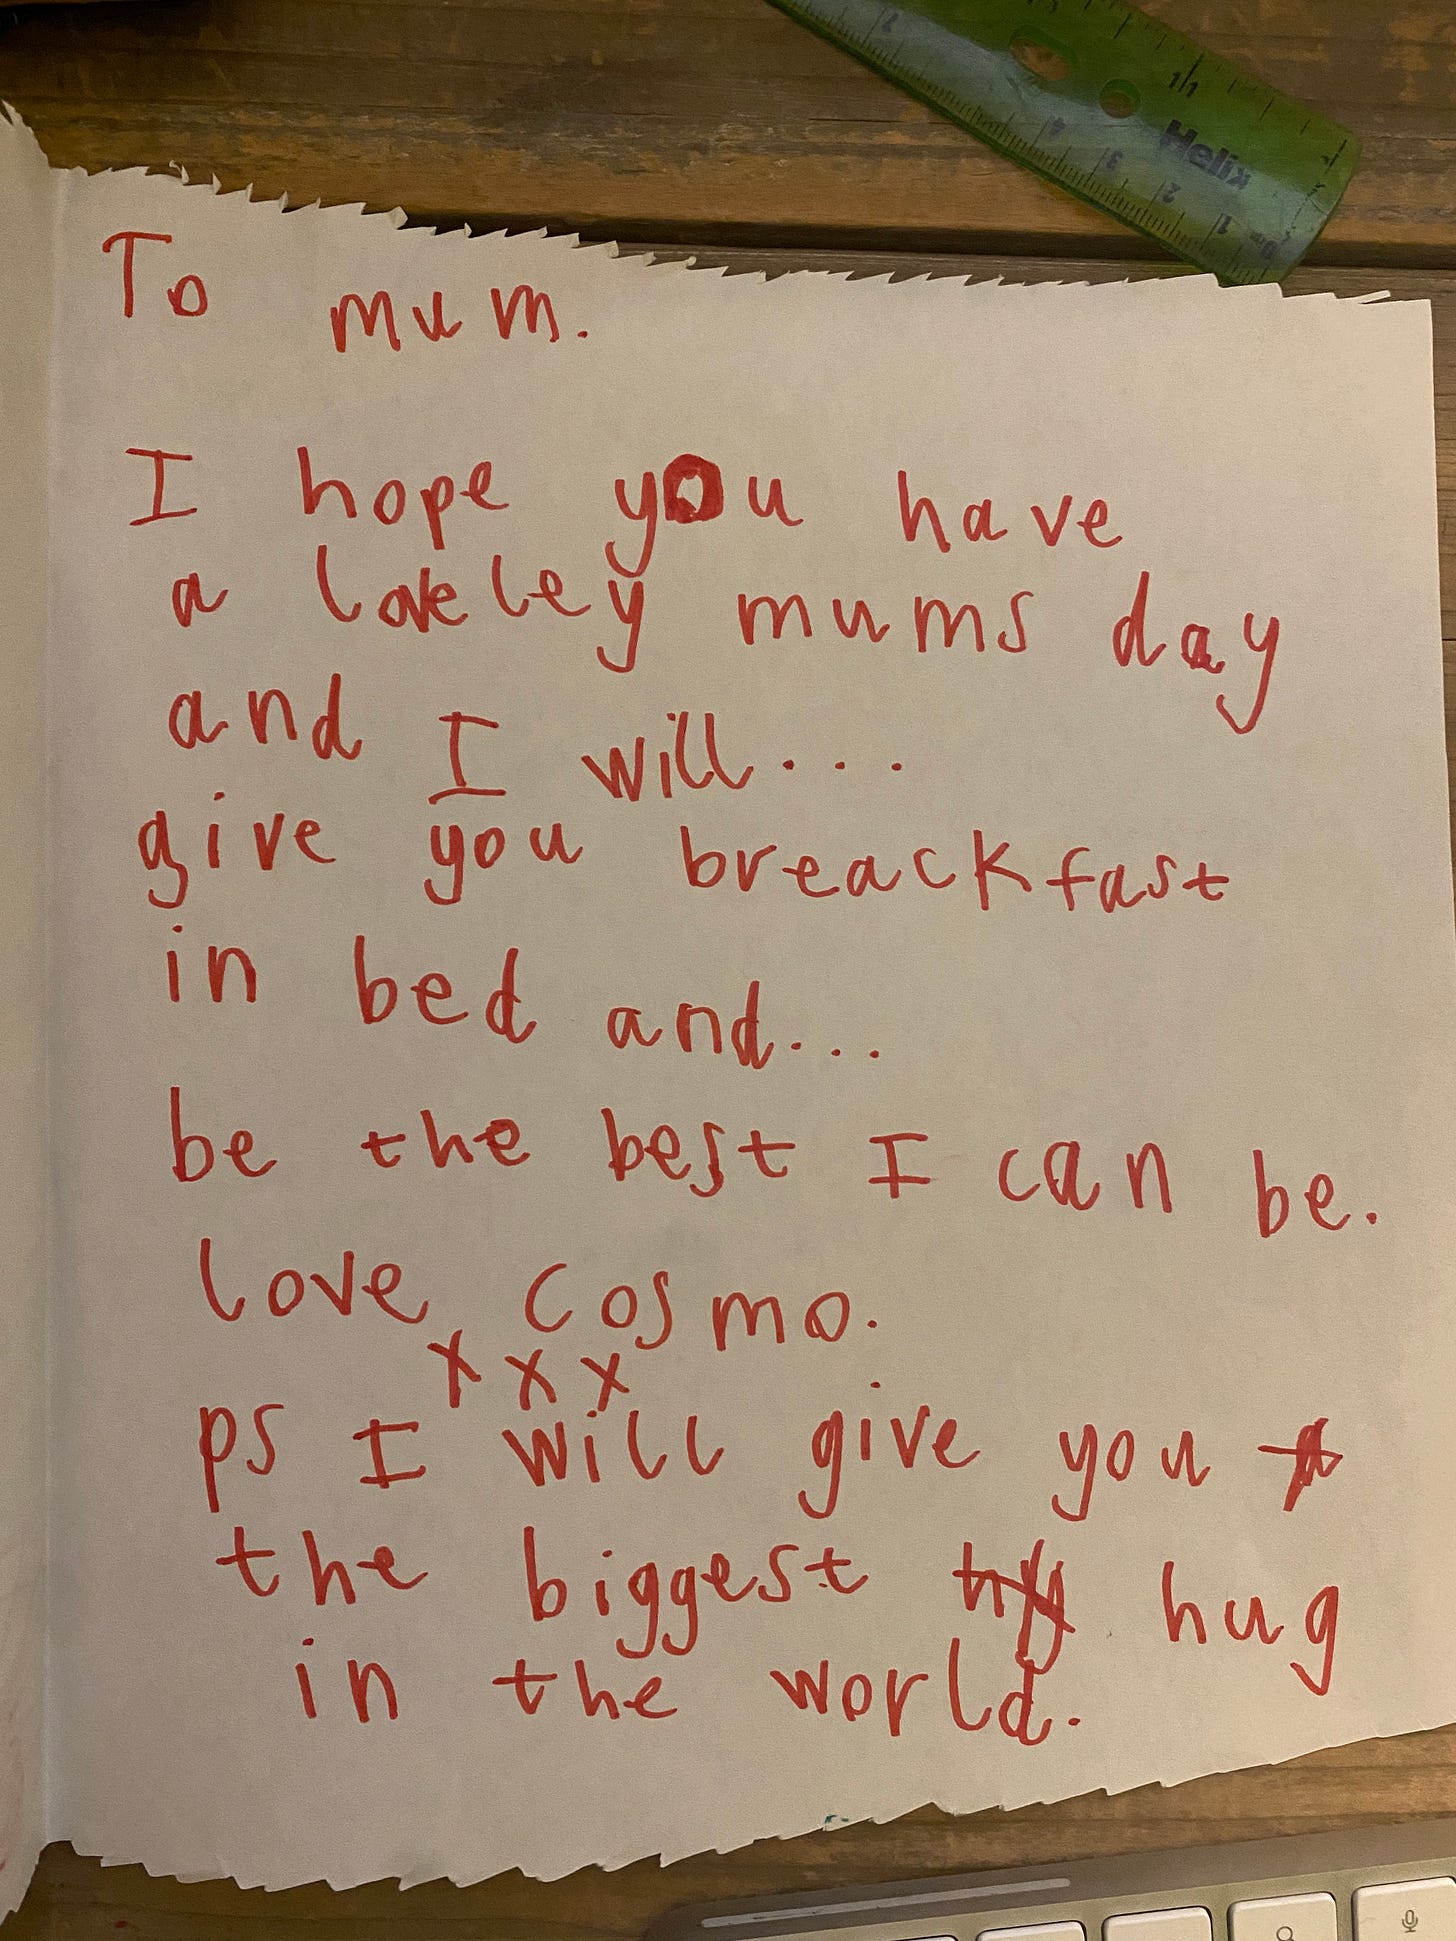 7
11
Helix
4
3
2
1
To mum.
I hope you have
a loveley mums day
and I will...
give you breackfast
in bed and...
be the best I can be.
love cosmo.
x x x
ps I will give you
the biggest hug
in the world.